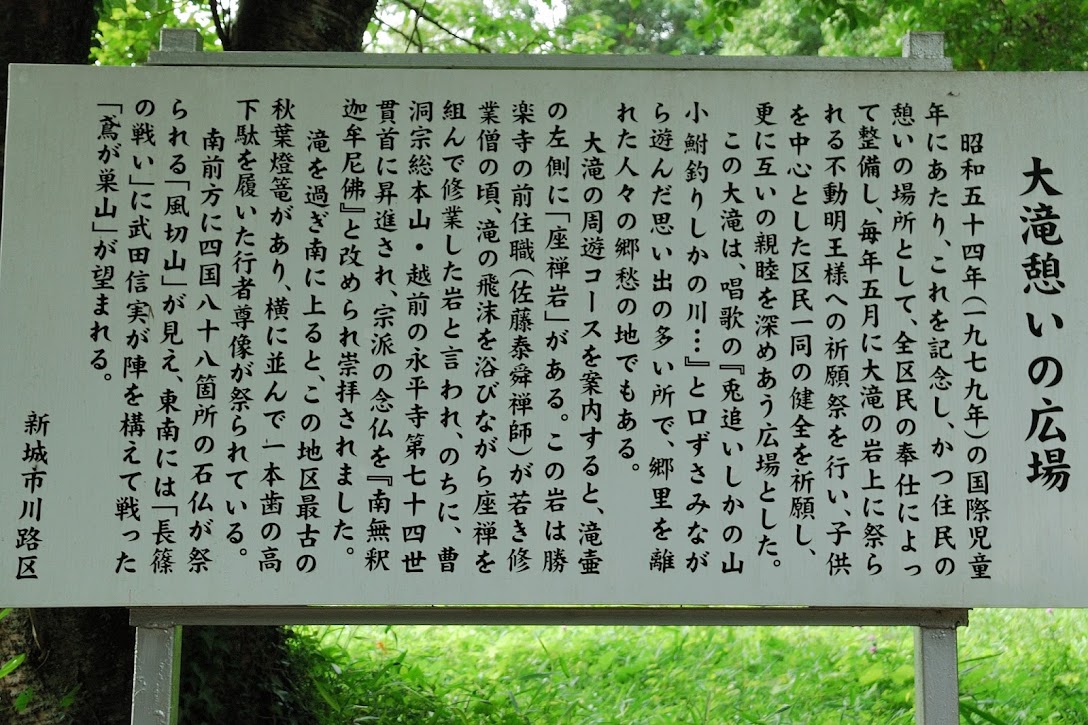 大滝憩いの広場
昭和五十四年(一九七九年)の国際児童
年にあたり、これを記念し、かつ住民の
憩いの場所として、全区民の奉仕によっ
て整備し、毎年五月に大滝の岩上に祭ら
れる不動明王様への祈願祭を行い、子供
を中心とした区民一同の健全を祈願し、
更に互いの親睦を深めあう広場とした。
この大滝は、唱歌の『兎追いしかの山
小鮒釣りしかの川…』と口ずさみなが
ら遊んだ思い出の多い所で、郷里を離
れた人々の郷愁の地でもある。
大滝の周遊コースを案内すると、滝壷
の左側に「座禅岩」がある。この岩は勝
楽寺の前住職(佐藤泰舜禅師)が若き修
業僧の頃、滝の飛沫を浴びながら座禅を
組んで修業した岩と言われ、のちに、曹
洞宗総本山・越前の永平寺第七十四世
貫首に昇進され、宗派の念仏を『南無釈
迦牟尼佛』と改められ崇拝されました。
滝を過ぎ南に上ると、この地区最古の
秋葉燈篭があり、横に並んで一本歯の高
下駄を履いた行者尊像が祭られている。
南前方に四国八十八箇所の石仏が祭
られる「風切山」が見え、東南には「長篠
の戦い」に武田信実が陣を構えて戦った
「鳶が巣山」が望まれる。
新城市川路区